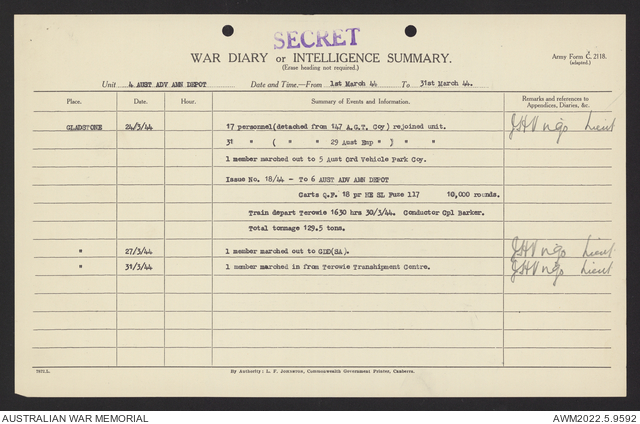 SECRET
WAR DIARY or INTELLIGENCE SUMMARY.
(Erase heading not required.)
Army Form C. 2118.
(adapted.)
Unit 4 AUST ADV AMN DEPOT Date and Time.—From 1st March 44 To 31st March 44.
Place. Date. Hour. Summary of Events and Information. Remarks and references to Appendices, Diaries, &c.
GLADSTONE 24/3/44 17 personnel(detached from 147 A.G.T. Coy) rejoined unit. Lieut
31 " ( " " 29 Aust Emp " ) " "
1 member marched out to 5 Aust Ord Vehicle Park Coy.
Issue No. 18/44 - To 6 AUST ADV AMN DEPOT
Carts Q.F. 18 pr HE SL Fuze 117 10,000 rounds.
Train depart Terowie 1630 hrs 30/3/44. Conductor Cpl Barker.
Total tonnage 129.5 tons.
" 27/3/44 1 member marched out to GDD(SA). Lieut
" 31/3/44 1 member marched in from Terowie Transhipment Centre. Lieut
7872.L. By Authority: L. F. Johnston, Commonwealth Government Printer, Canberra.
AUSTRALIAN WAR MEMORIAL AWM2022.5.9592